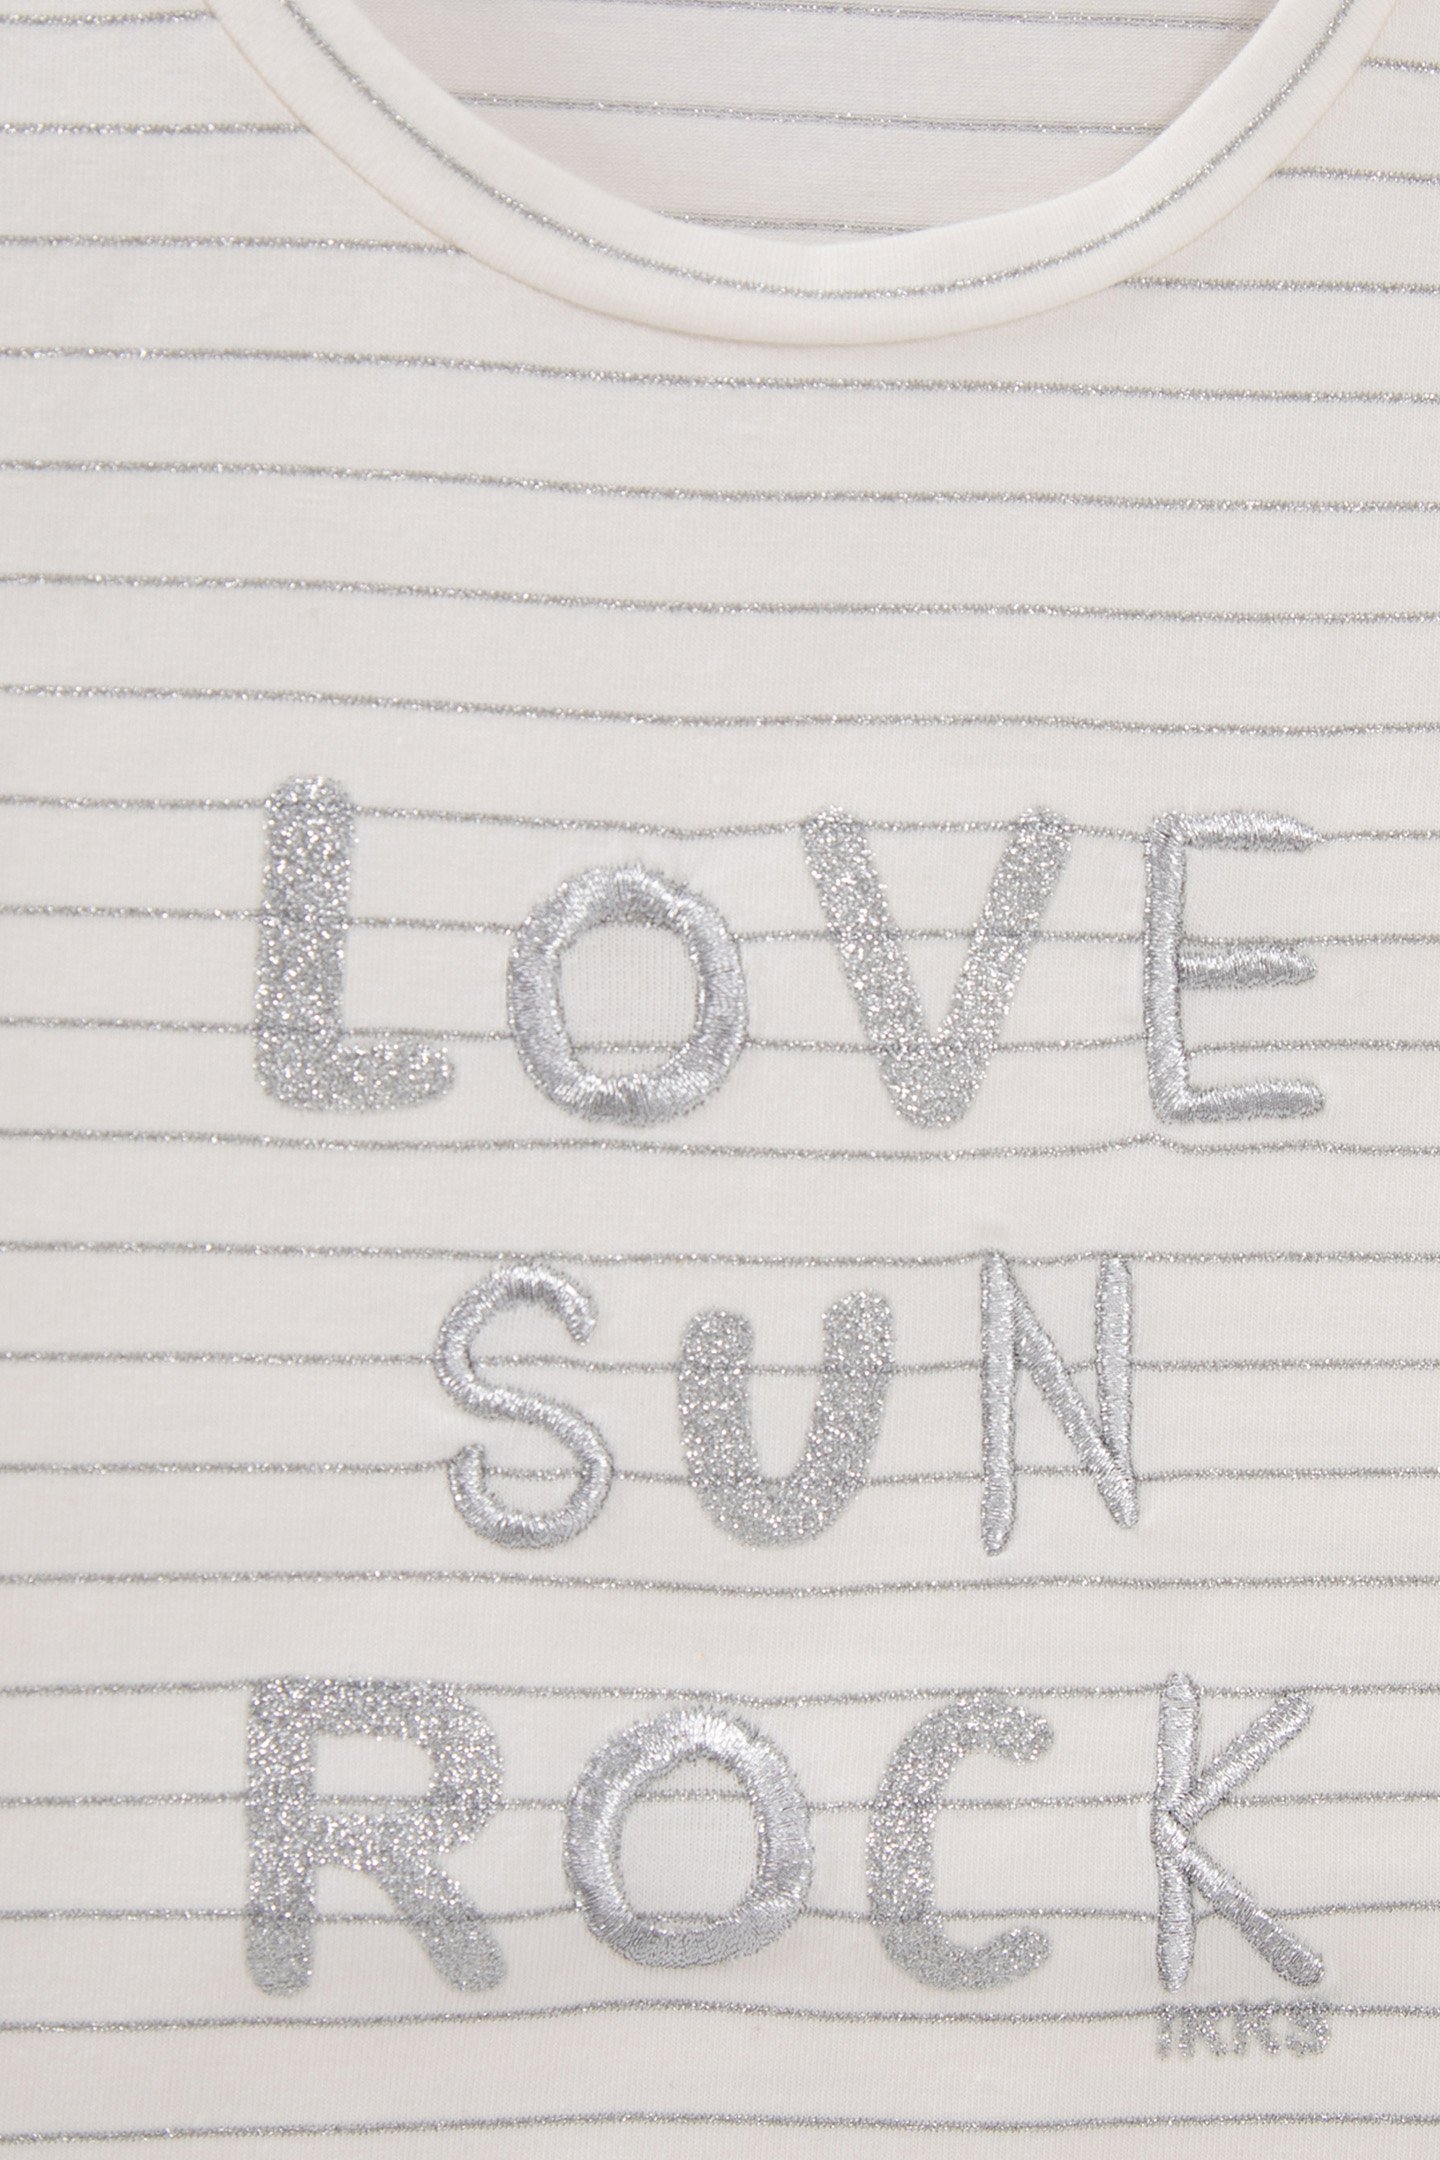 LoVE
SUN
ROCK
IKKS